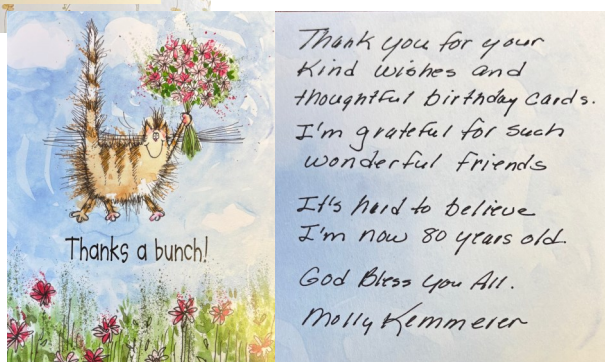 Thanks a bunch!
Thank you for your
Kind wishes and
thoughtful birthday cards.
I'm grateful for such
wonderful friends
It's hard to believe
I'm now 80 years old.
God Bless You All.
Molly Kemmerer